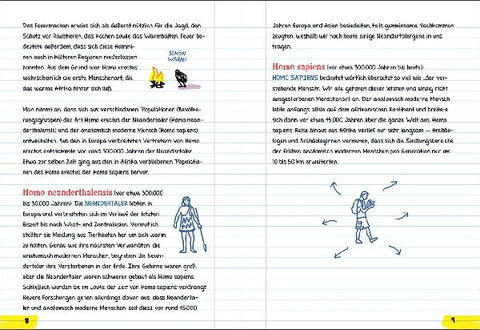 Das Feuermachen erwies sich als äußerst nützlich für die Jagd, den
Schutz vor Raubtieren, das Kochen sowie das Warmhalten. Feuer be-
deutete außerdem, dass sich diese Homini-
nen auch in kälteren Regionen niederlassen
konnten. Aus dem Grund war Homo erectus
wahrscheinlich die erste Menschenart, die
das warme Afrika hinter sich ließ.
SCHÖN
WARM!
Man nimmt an, dass sich aus verschiedenen Populationen (Bevölke-
rungsgruppen) der Art Homo erectus der Neandertaler (Homo nean-
derthalensis) und der anatomisch moderne Mensch (Homo sapiens)
entwickelten. Aus den in Europa verbreiteten Vertretern von Homo
erectus entstammte vor rund 300.000 Jahren der Neandertaler.
Etwa zur selben Zeit ging aus den in Afrika verbliebenen Populatio-
nen des Homo erectus Homo sapiens hervor.
Homo neanderthalensis (vor etwa 300.000
bis 30.000 Jahren): Die NEANDERTALER lebten in
Europa und verbreiteten sich im Verlauf der letzten
Eiszeit bis nach West- und Zentralasien. Vermutlich
stellten sie Kleidung aus Tierhäuten her um sich warm
zu halten. Genau wie ihre nächsten Verwandten, die
anatomisch modernen Menschen, begruben die Nean-
dertaler ihre Verstorbenen in der Erde. Ihre Gehirne waren groß,
aber die Neandertaler waren schwerer gebaut als Homo sapiens.
Schließlich wurden sie im Laufe der Zeit von Homo sapiens verdrängt.
Neuere Forschungen gehen allerdings davon aus, dass Neanderta-
ler und anatomisch moderne Menschen, seit diese vor rund 45.000
8
Jahren Europa und Asien besiedelten, teils gemeinsame Nachkommen
zeugten, weshalb wir noch heute einige Neandertalergene in uns
tragen.
Homo sapiens (vor etwa 300.000 Jahren bis heute):
HOMO SAPIENS bedeutet wörtlich übersetzt so viel wie „der ver-
stehende Mensch“. Wir alle gehören dieser letzten und einzig nicht
ausgestorbenen Menschenart an. Der anatomisch moderne Mensch
lebte anfangs allein auf dem afrikanischen Kontinent und breite-
te sich dann vor etwa 45.000 Jahren über die ganze Welt aus. Homo
sapiens' Reise hinaus aus Afrika verlief nur sehr langsam — Archäo-
logen und Archäologinnen vermuten, dass sich die Siedlungsbereiche
der frühen anatomisch modernen Menschen pro Generation nur um
10 bis 50 km erweiterten.
9